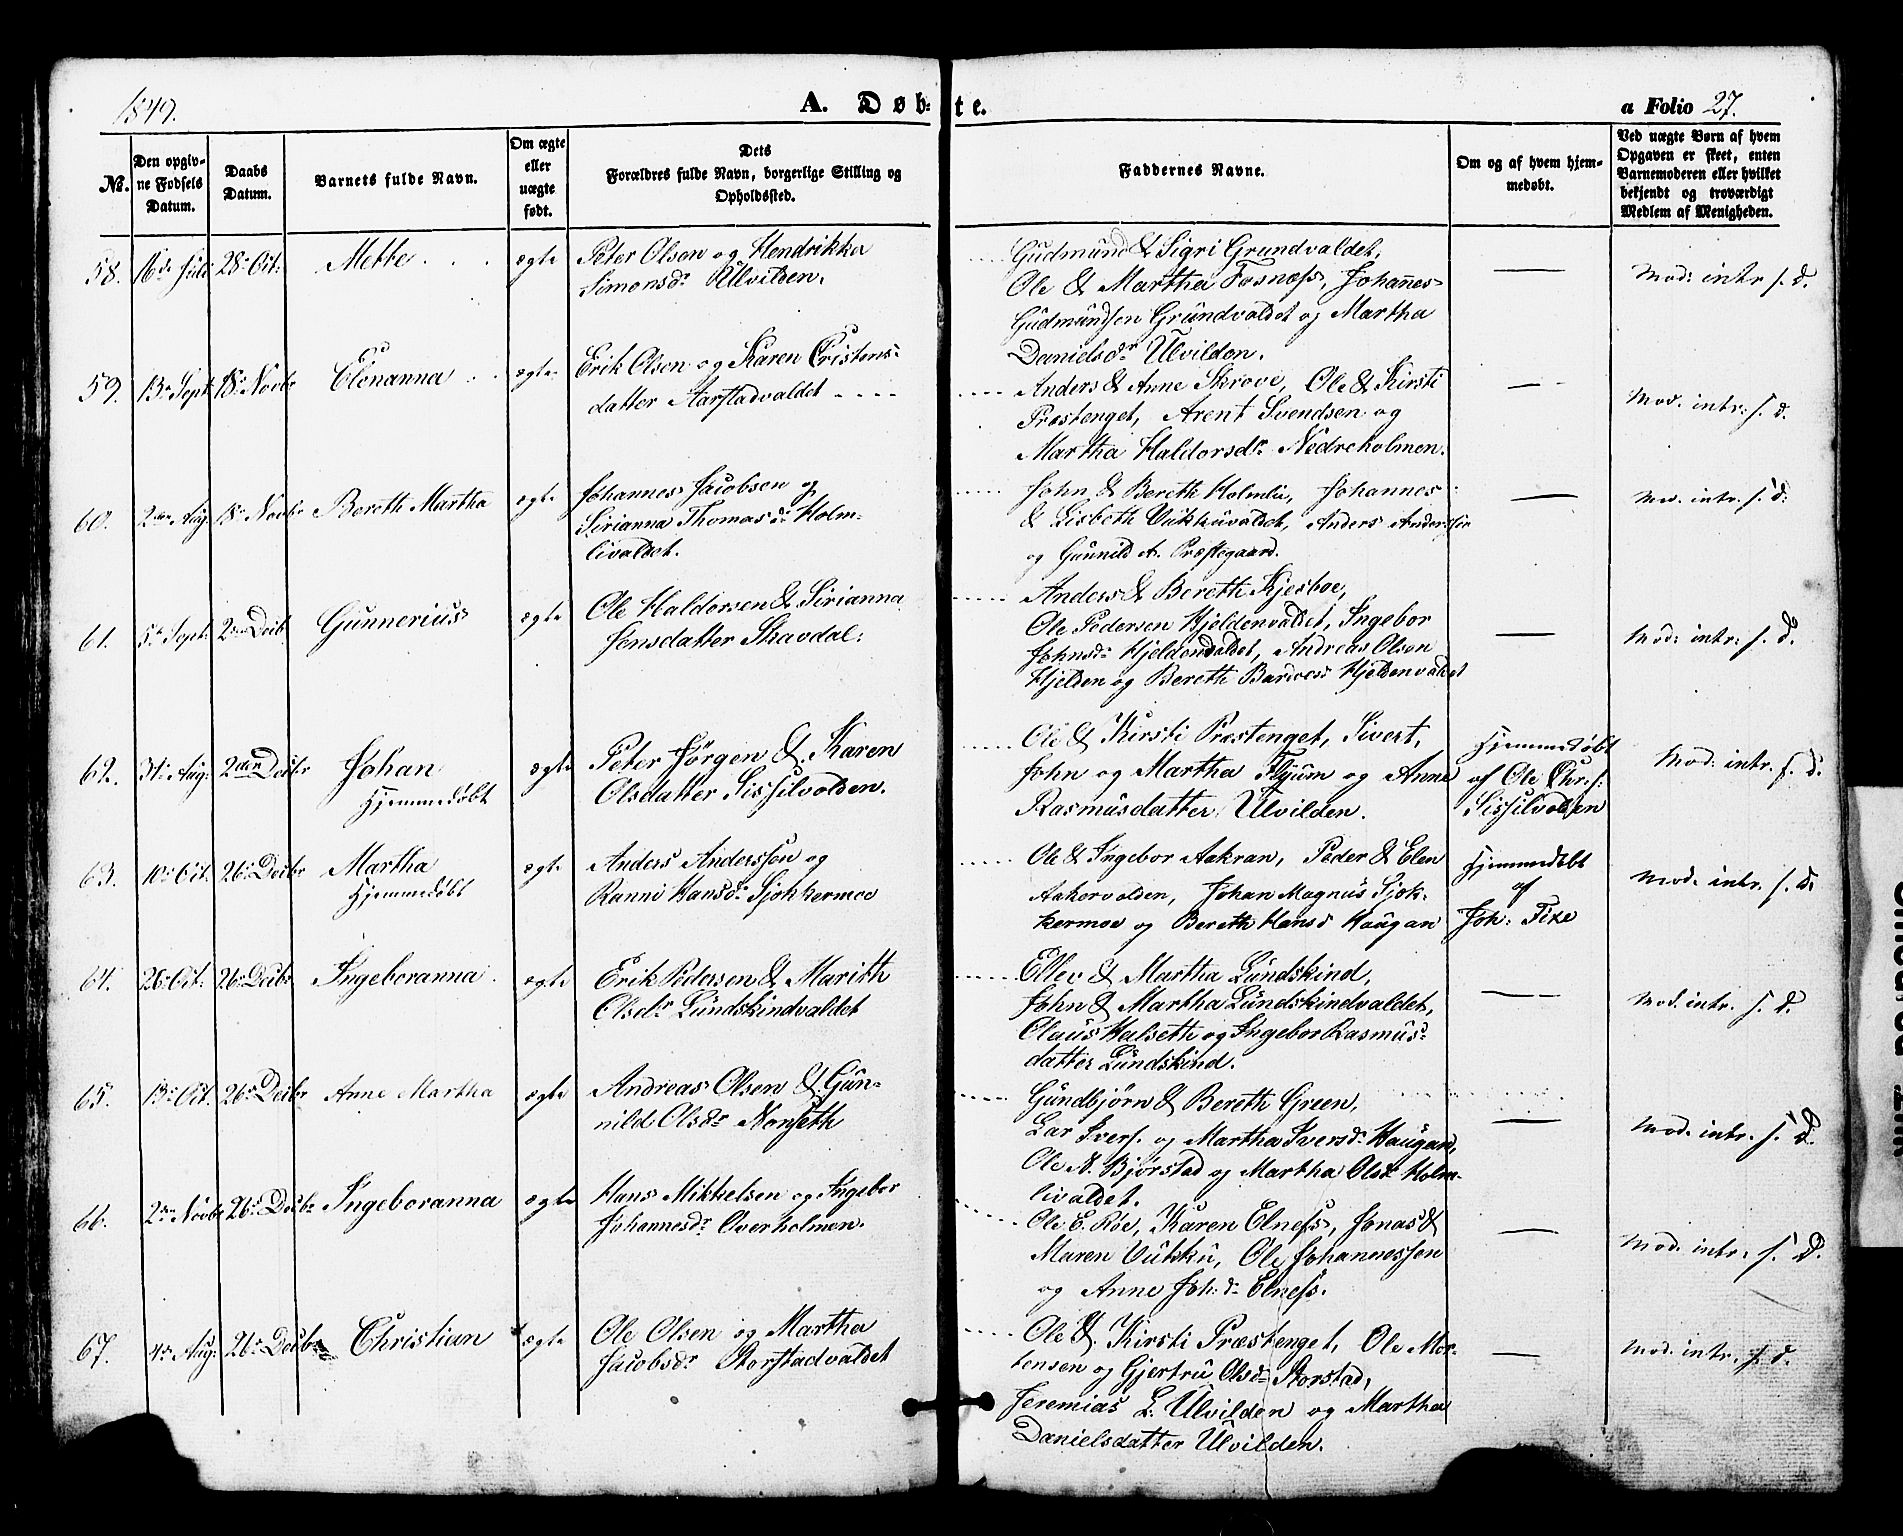 1849.
A. Døb-te.
a Folio 27.
No.
Den opgiv-
ne Fødsels
Datum.
Daabs
Datum.
Barnets fulde Navn.
Om ægte
eller
uægte
født.
Dets
Forældres fulde Navn, borgerlige Stilling og
Opholdssted.
Faddernes Navne.
Om og af hvem hjem-
medøbt.
Ved uægte Børn af hvem
Opgaven er skeet, enten
Barnemoderen eller hvilket
bekjendt og troværdigt
Medlem af Menigheden.
58. 16de Juli 28. Oct: Mette ægte Peter Olsen og Hendrikka
Simonsdr Ulvilden.
Gudmund & Sigri Grundvaldet,
Ole & Martha Fosness, Johannes
Gudmundsen Grundvaldet og Martha
Danielsdr Ulvilden.
— Mod: intr. s. d.
59. 13. Sept. 18. Novbr Elenanna ægte Erik Olsen og Karen Cristens-
datter Aarstadvaldet
Anders & Anne Skrove, Ole & Kirsti
Præstenget, Arent Svendsen og
Martha Haldorsdr Nedreholmen.
— Mod. intr: s. d.
60. 2den Aug. 18. Novbr Bereth Martha ægte Johannes Jacobsen og
Sirianna Thomasdr Holm-
livaldet.
John & Bereth Holmli, Johannes
& Lisbeth Vukkuvaldet, Anders Andersen
og Gunnild A. Præstegaard.
— Mod. intr. s. d.
61. 5te Sept: 2den Decb. Gunnerius ægte Ole Haldorsen & Sirianna
Jensdatter Skavdal:
Anders & Bereth Kjesboe,
Ole Pedersen Hjeldenvaldet, Ingebor
Johnsdr Hjeldenvaldet, Andreas Olsen
Hjelden og Bereth Hjeldenvaldet
— Mod: intr: s. d.
62. 31. Aug: 2den Decbr Johan
Hjemmedøbt
ægte Peter Jørgen & Karen
Olsdatter Sissilvolden.
Ole & Kirsti Præstenget, Sivert,
John og Martha Fljum og Anne
Rasmusdatter Ulvilden.
Hjemmedøbt
af Ole Chr. s:
Sissilvolden
Mod. intr. s. d.
63. 10. Oct. 26. Decbr Martha
Hjemmedøbt
ægte Anders Anderssen og
Ranni Hansdr Sjøkkermoe
Ole & Ingebor Aakran, Peder & Elen
Aakervolden, Johan Magnus Sjøk-
kermoe og Bereth Hansd Haugan
Hjemmedøbt
af
Joh: Fixe
Mod. intr. s. d.
64. 26. Oct. 26. Decbr Ingeboranna ægte Erik Pedersen & Marith
Olsdr Lundskindvaldet
Ellev & Martha Lundskind,
John & Martha Lundskindvaldet,
Claus Halseth og Ingebor Rasmus-
datter Lundskind.
— Mod. intr. s. d.
65. 13. Oct. 26. Decbr Anne Martha ægte Andreas Olsen & Gun-
nild Olsdr Norseth
Gundbjørn & Bereth Green,
Lar Ivers. og Martha Iversdr Haugan,
Ole N. Bjørstad og Martha Olsdr Holm-
livaldet.
— Mod. intr. s. d.
66. 2den Novbr 26. Decbr Ingeboranna ægte Hans Mikkelsen og Ingebor
Johannesdr Overholmen.
Ole E. Røe, Karen Elness, Jonas &
Maren Vukku, Ole Johannessen
og Anne Joh. dr Elness.
— Mod. intr. s. d.
67. 4de Aug: 26. Decbr Christian ægte Ole Olsen og Martha
Jacobsdr Storstadvaldet
Ole & Kirsti Præstenget, Ole Mor-
tensen og Gjertru Olsdr Storstad,
Jeremias L. Ulvilden og Martha
Danielsdatter Ulvilden.
— Mod. intr. s. d.